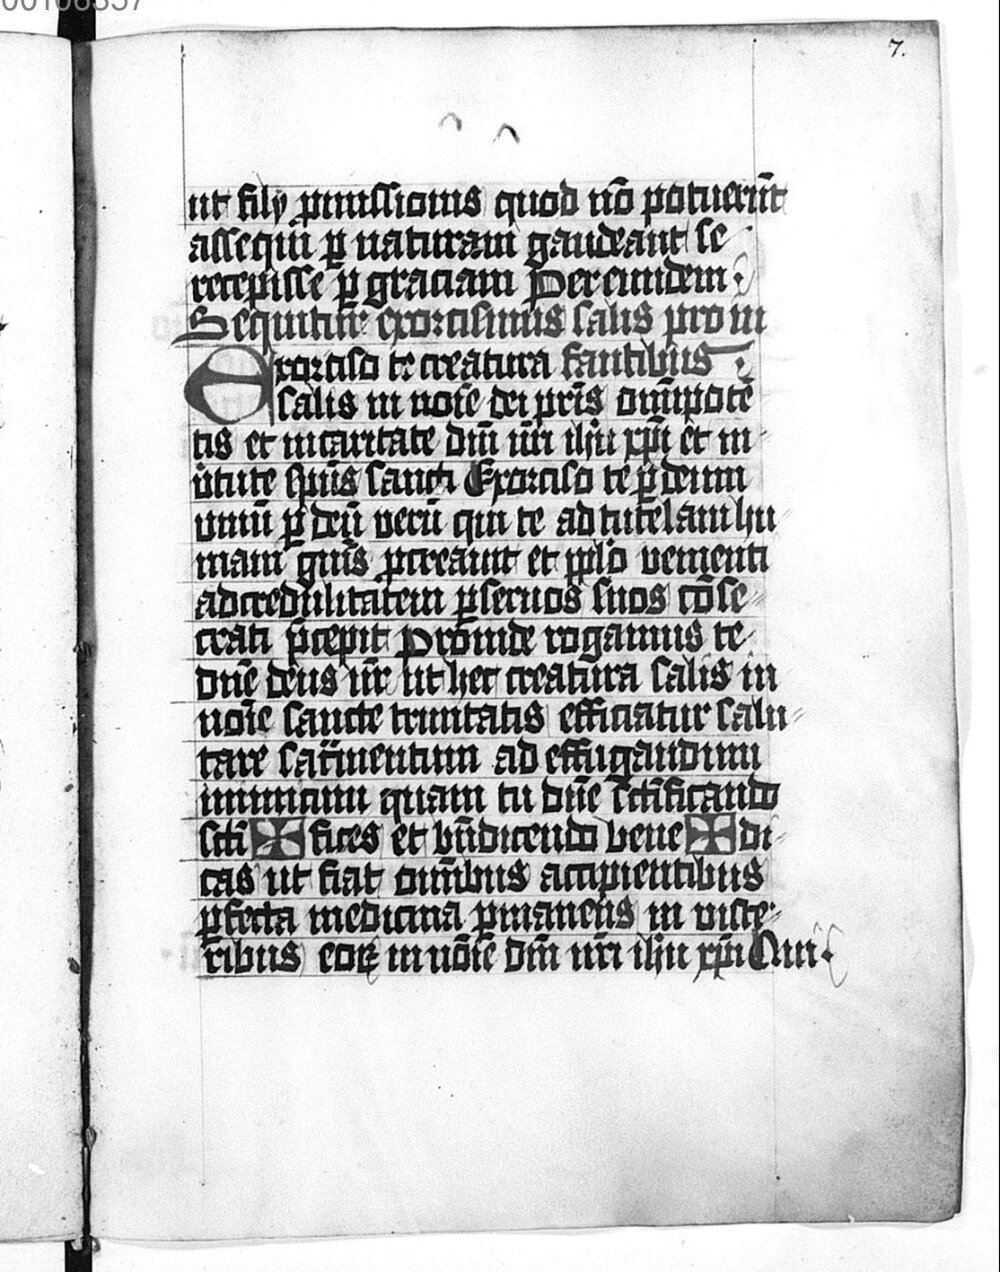 00106357
7.
ut filÿ ꝓmissionis quod nō potuerūt
assequi ꝑ naturam gaudeant se
recepisse ꝑ graciam Per eundem
Sequitur exorcismus salis pro in
Exorciso te creatura fantibus
salis in noīe dei pr̄is omīpotē
tis et in caritate dīn nr̄i ihū xp̄i et in
v̄tute sp̄us sancti Exorciso te ꝑ deum
vniū ꝑ deū verū qui te ad tutelam hu
mani gn̄is ꝓcreauit et pplo venienti
ad credulitatem ꝑ seruos suos cōse
crari p̄cepit Proinde rogamus te
dn̄e deus nr̄ ut hec creatura salis in
noīe sancte trinitatis efficiatur salu
tare sacr̄mentum ad effugandum
inimicum quam tu dn̄e sc̄tificando
sc̄ti ✠ fices et bn̄dicendo bene ✠ di
cas ut fiat omībus accipientibus
ꝑfecta medicina ꝑmanens in visce
ribus eoꝝ in nōie dn̄i nr̄i ihū xp̄i Qui